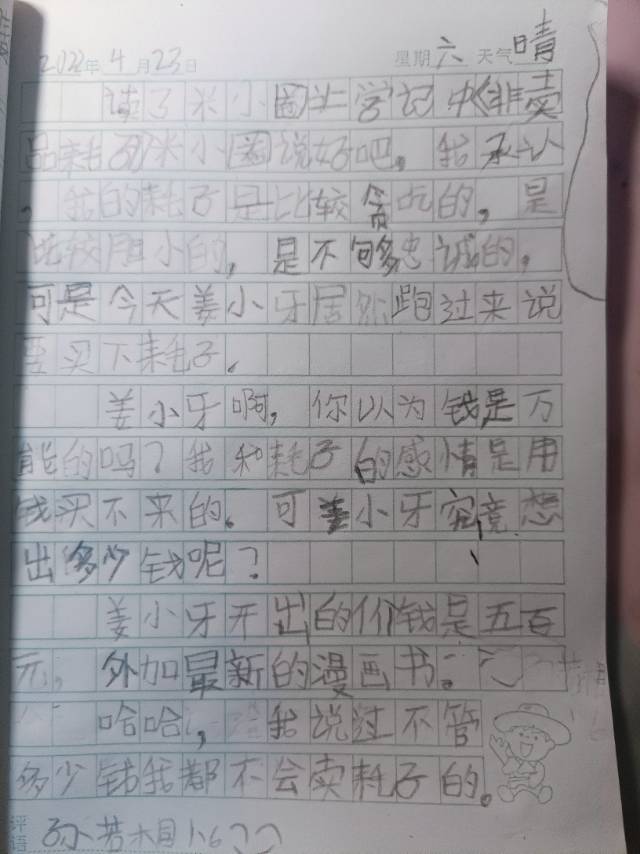 2022年4月23日 星期六 天气晴
读了米小圈上学记中《非卖
品耗子》米小圈说好吧,我承认
,我的耗子是比较贪吃的,是
比较胆小的,是不够忠诚的,
可是今天姜小牙居然跑过来说
要买下耗子.
姜小牙啊,你以为钱是万
能的吗?我和耗子的感情是用
钱买不来的.可姜小牙究竟想
出多少钱呢?
姜小牙开出的价钱是五百
元.外加最新的漫画书.
哈哈,我说过不管
多少钱我都不会卖耗子的。
评语